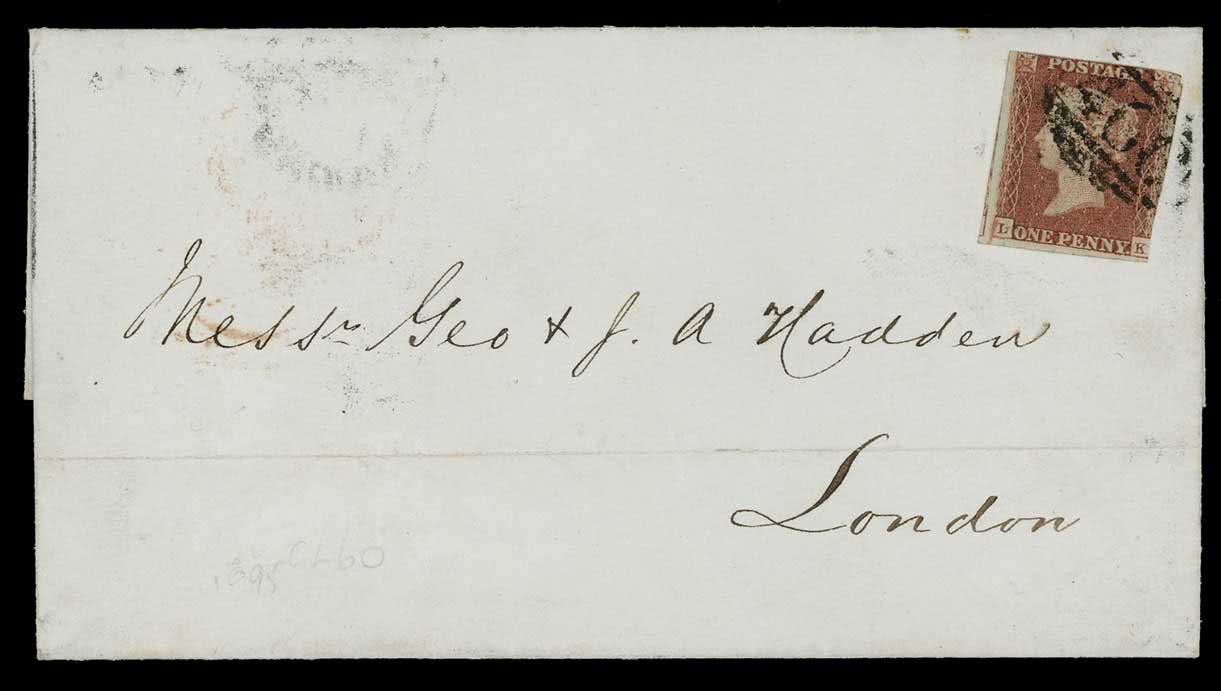 POSTAGE
L ONE PENNY. K
Messrs Geo & J. A Hadden
London